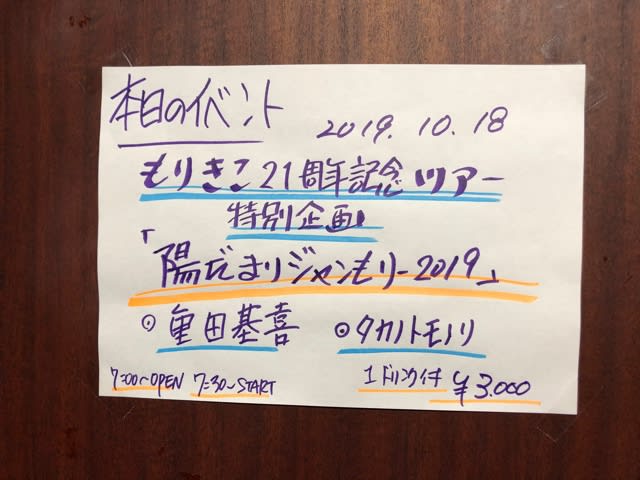 本日のイベント
2019.10.18
もりきこ21周年記念ツアー
特別企画
「陽だまりジャンもリー2019」
◎重田基喜 ◎タカノトモノリ
7:00~OPEN 7:30~START 1ドリンク付 ¥3.000